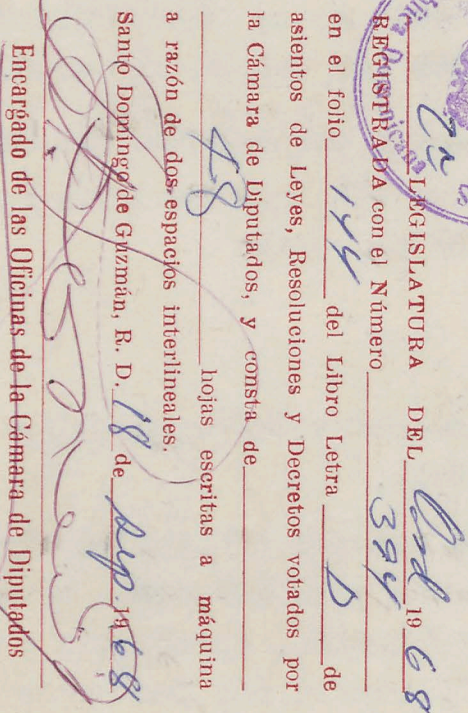 2a LEGISLATURA DEL Ord 1968
REGISTRADA con el Número 394
en el folio 144 del Libro Letra D de
asientos de Leyes, Resoluciones y Decretos votados por
la Cámara de Diputados, y consta de
48 hojas escritas a máquina
a razón de dos espacios interlineales.
Santo Domingo de Guzmán, R. D. 18 de Sep. 1968
Encargado de las Oficinas de la Cámara de Diputados
Dominicana